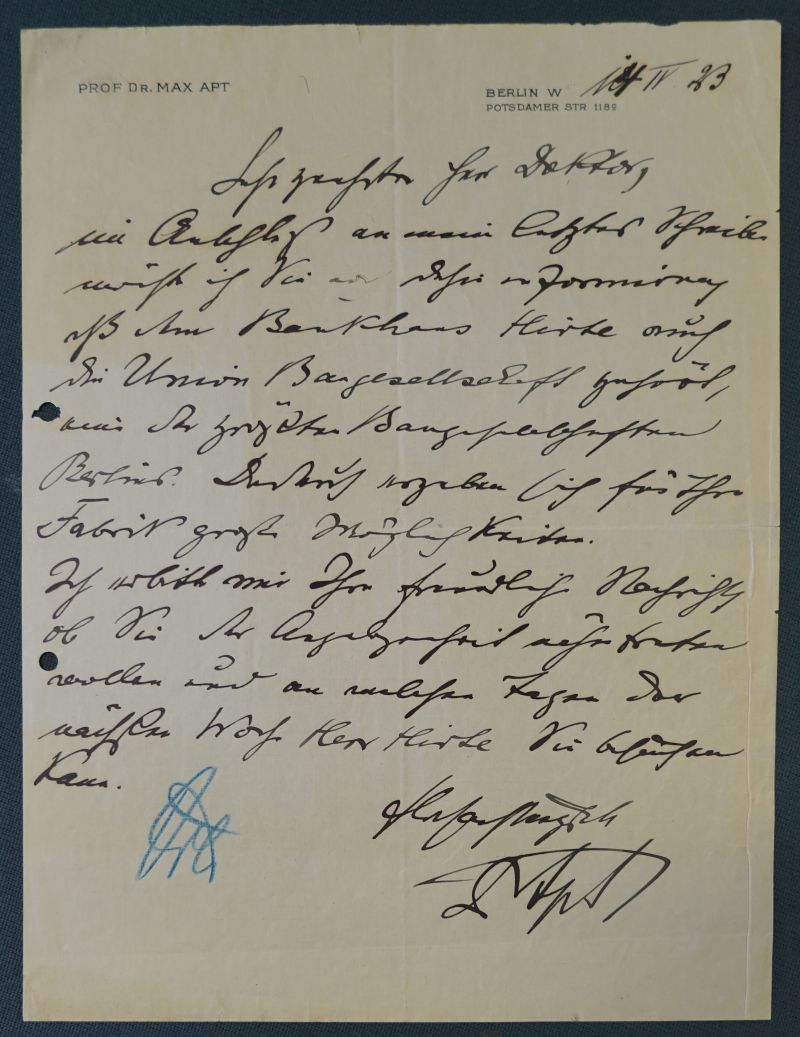 PROF DR. MAX APT
BERLIN W 14 IV 23
POTSDAMER STR 118c
Sehr geehrter Herr Doktor,
im Anschluß an mein letztes Schreiben
möchte ich Sie dahin informieren,
daß dem Bankhaus Hirte auch
die Union Baugesellschaft gehört,
eine der größten Baugesellschaften
Berlins. Dadurch ergeben sich für Ihre
Fabrik große Möglichkeiten.
Ich erbitte mir Ihre freundliche Nachricht,
ob Sie der Angelegenheit näher treten
wollen und an welchen Tagen der
nächsten Woche Herr Hirte Sie besuchen
kann.
Hochachtungsvoll
Dr Apt